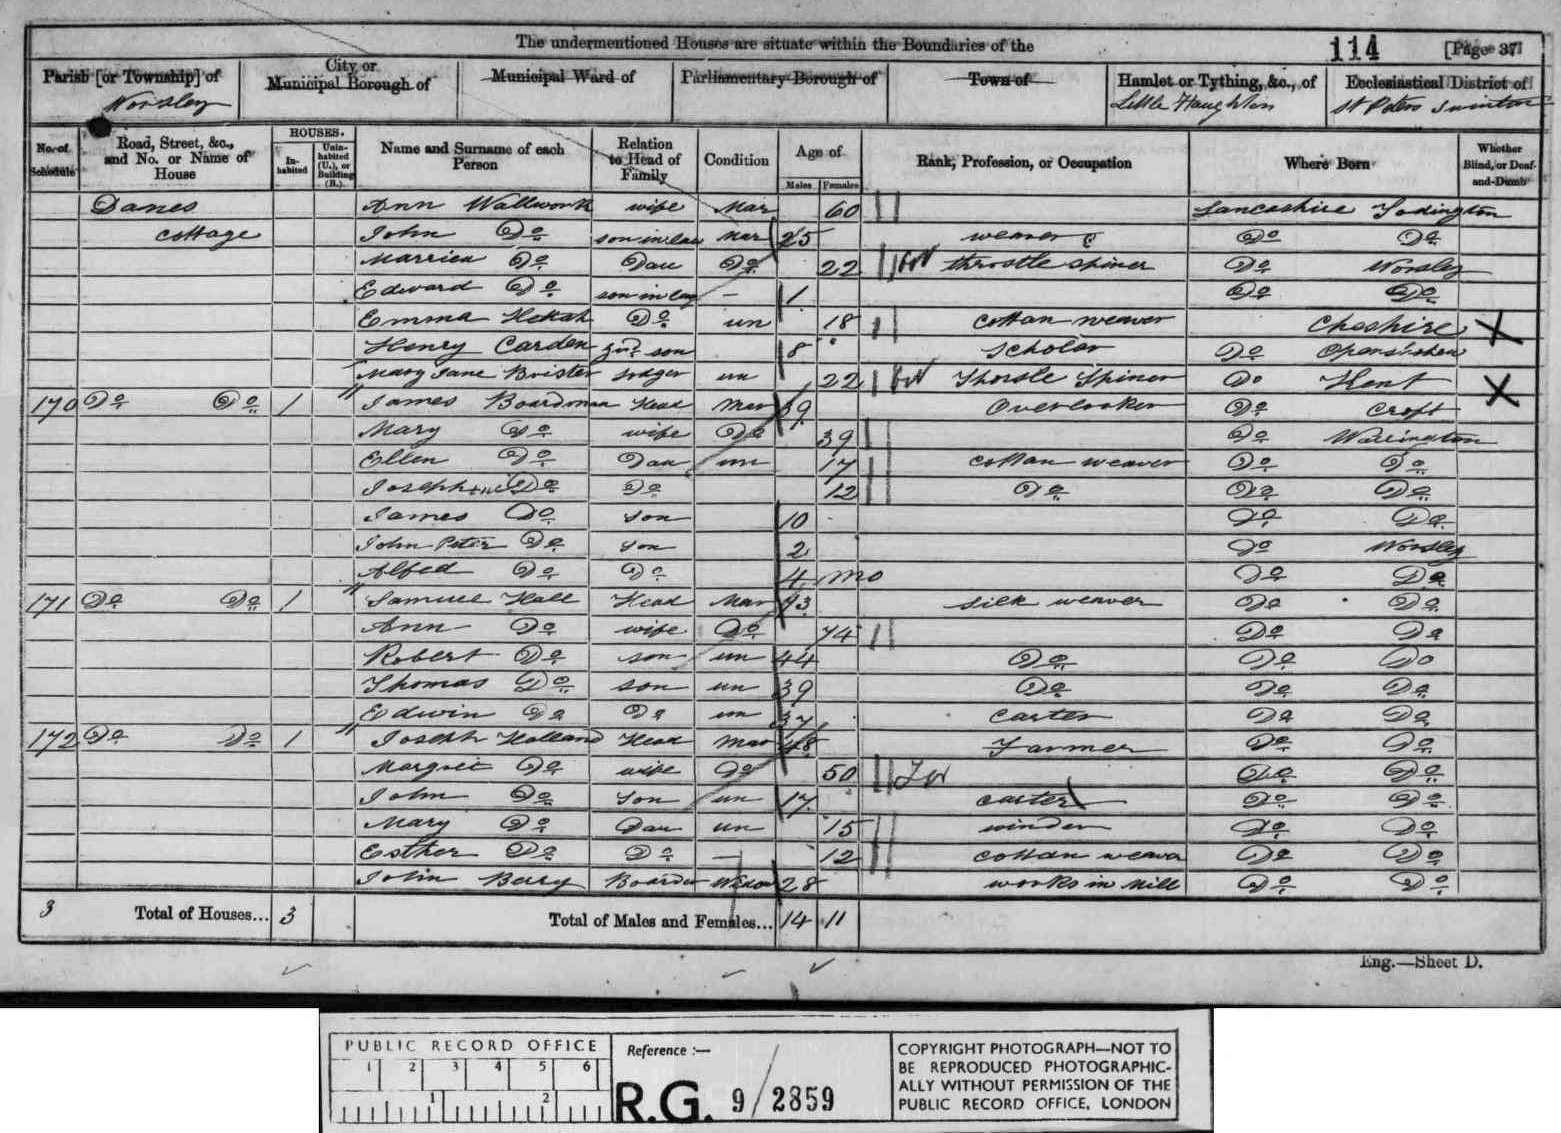 The undermentioned Houses are situate within the Boundaries of the 114 [Page 37]
Parish [or Township] of City or Municipal Borough of Municipal Ward of Parliamentary Borough of Town of Hamlet or Tything, &c., of Ecclesiastical District of
Worsley Little Haughton St Peters Swinton
No. of Schedule Road, Street, &c., and No. or Name of House HOUSES. Inhabited Uninhabited (U.), or Building (B.) Name and Surname of each Person Relation to Head of Family Condition Age of Males Females Rank, Profession, or Occupation Where Born Whether Blind, or Deaf-and-Dumb
Danes Ann Wallwork wife Mar 60 Lancashire
cottage John Do son in law Mar 25 weaver Do Do
Do Dau Do 22 throstle spiner Do Worsley
Edward Do son in law - 1 Do Do
Emma Do un 18 cottan weaver Cheshire
Henry Carden son 8 scholar Do
Mary Jane lodger un 22 Spiner Do Kent
170 Do Do 1 James Boardman Head Mar 39 Overlooker Do Croft
Mary Do wife Do 39 Do Warrington
Ellen Do Dau un 17 cottan weaver Do Do
Do Do 12 Do Do Do
James Do son 10 Do Do
John Peter Do son 2 Do Worsley
Alfed Do Do 4 mo Do Do
171 Do Do 1 Samuel Hall Head Mar 73 silk weaver Do Do
Ann Do wife Do 74 Do Do
Robert Do son un 44 Do Do Do
Thomas Do son un 39 Do Do Do
Edwin Do Do un 37 carter Do Do
172 Do Do 1 Joseph Holland Head Mar 48 Farmer Do Do
Do wife Do 50 Do Do
John Do son un 17 carter Do Do
Mary Do Dau un 15 winder Do Do
Esther Do Do - 12 cottan weaver Do Do
John Berry Boarder 28 works in Mill Do Do
3 Total of Houses... 3 Total of Males and Females... 14 11
Eng.—Sheet D.
PUBLIC RECORD OFFICE
1 2 3 4 5 6
1 2
Reference :—
R.G. 9/2859
COPYRIGHT PHOTOGRAPH—NOT TO
BE REPRODUCED PHOTOGRAPHIC-
ALLY WITHOUT PERMISSION OF THE
PUBLIC RECORD OFFICE, LONDON